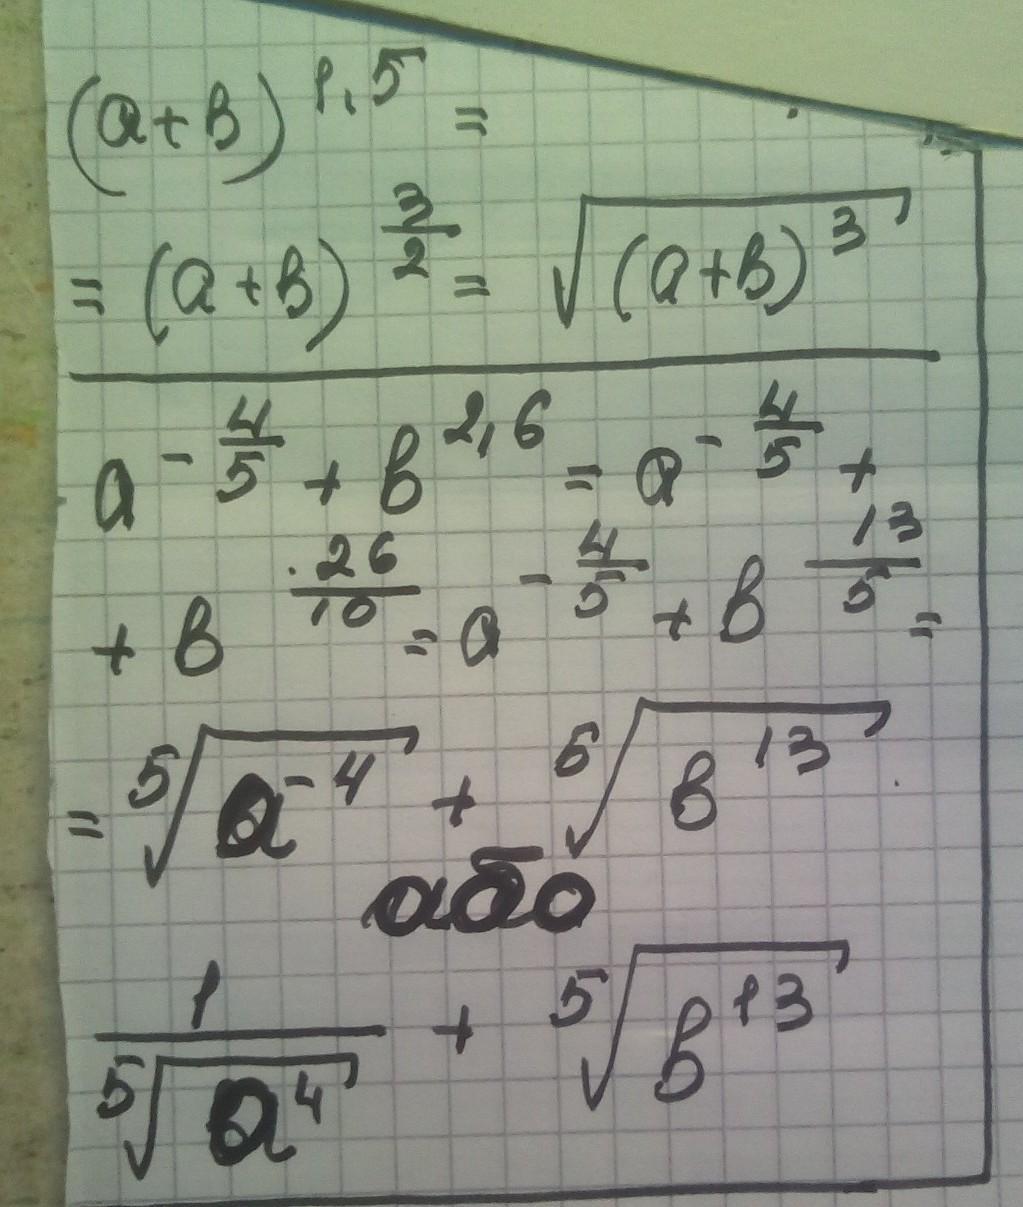 (a+b)^1,5 =
= (a+b)^3/2 = √(a+b)^3
a^-4/5 + b^2,6 = a^-4/5 +
+ b^26/10 = a^-4/5 + b^13/5 =
= ⁵√a^-4 + ⁵√b^13
або
1/⁵√a^4 + ⁵√b^13